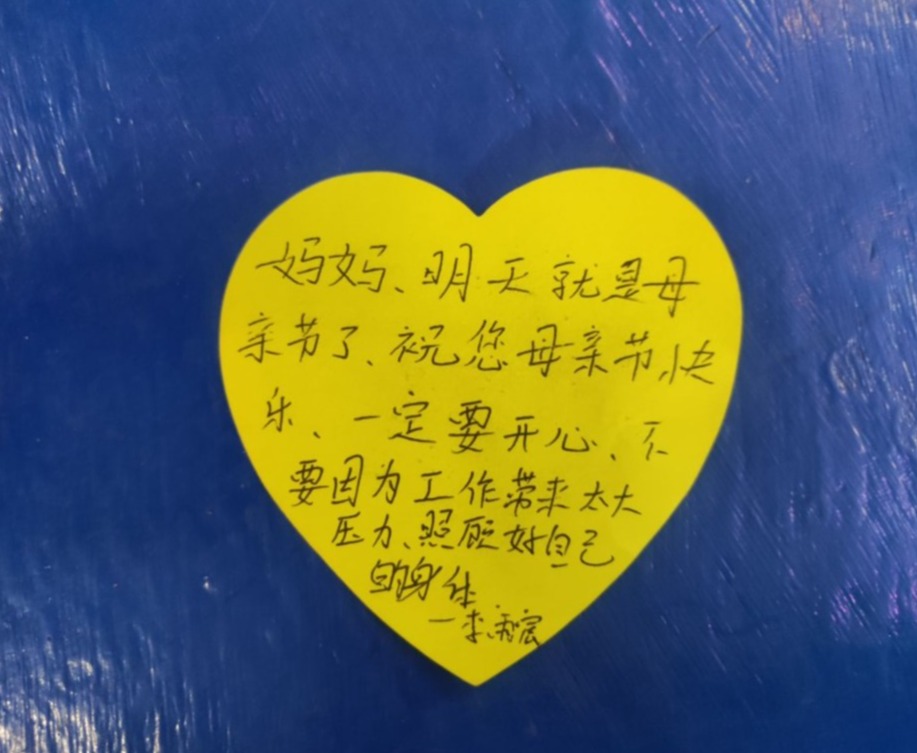 妈妈、明天就是母
亲节了、祝您母亲节快
乐、一定要开心、不
要因为工作带来太大
压力、照顾好自己
的身体